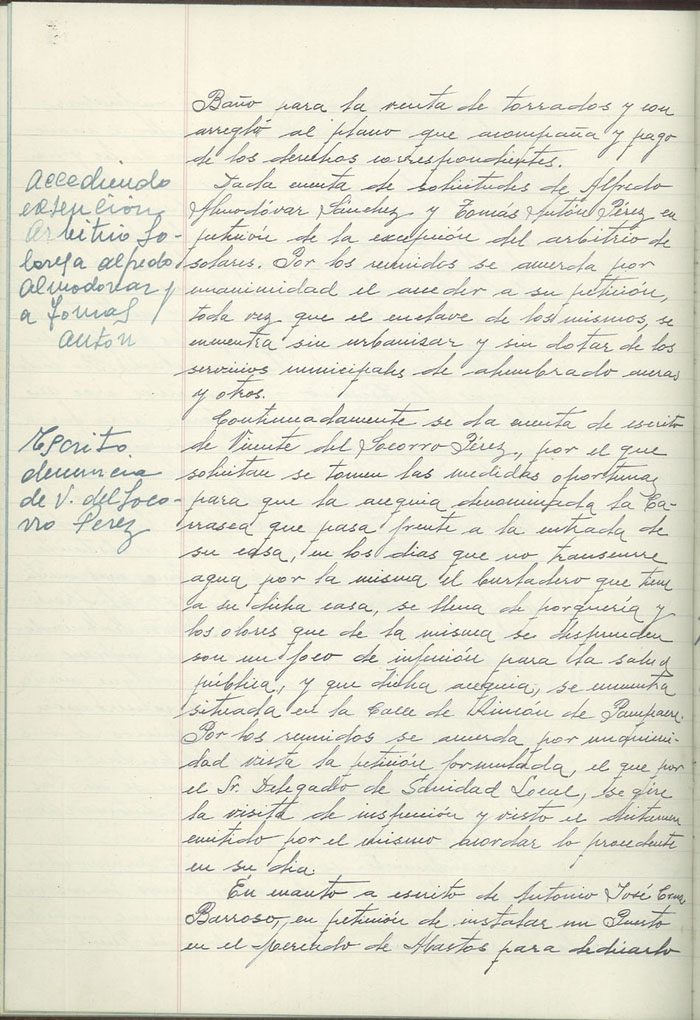 Baño para la venta de torrados y con
arreglo al plano que acompaña y pago
de los derechos correspondientes.
Accediendo
exsención
Arbitrio So-
lares a alfredo
Almodovar y
a Tomas
Antón
Dada cuenta de solicitudes de Alfredo
Almodóvar Sánchez y Tomás Antón Pérez en
petición de la excepción del arbitrio de
solares. Por los reunidos se acuerda por
unanimidad el acceder a su petición,
toda vez que el enclave de los mismos, se
encuentra sin urbanizar y sin dotar de los
servicios municipales de alumbrado aceras
y otros.
Escrito
denuncia
de V. del Soco-
rro Perez
Continuadamente se da cuenta de escrito
de Vicente del Socorro Pérez, por el que
solicitan se tomen las medidas oportunas
para que la acequia denominada la Ca-
rrasca que pasa frente a la entrada de
su casa, en los dias que no transcurre
agua por la misma el
que tiene
a su dicha casa, se llena de porquería y
los olores que de la misma se desprenden
son un foco de infección para la salud
pública, y que dicha acequia, se encuentra
situada en la Calle de Rincón de
Por los reunidos se acuerda por unanimi-
dad vista la petición formulada, el que por
el Sr. Delegado de Sanidad Local, se gire
la visita de inspección y visto el dictamen
emitido por el mismo acordar lo procedente
en su dia.
En cuanto a escrito de Antonio José Cruz
Barroso, en petición de instalar un Puesto
en el Mercado de Abastos para dedicarlo